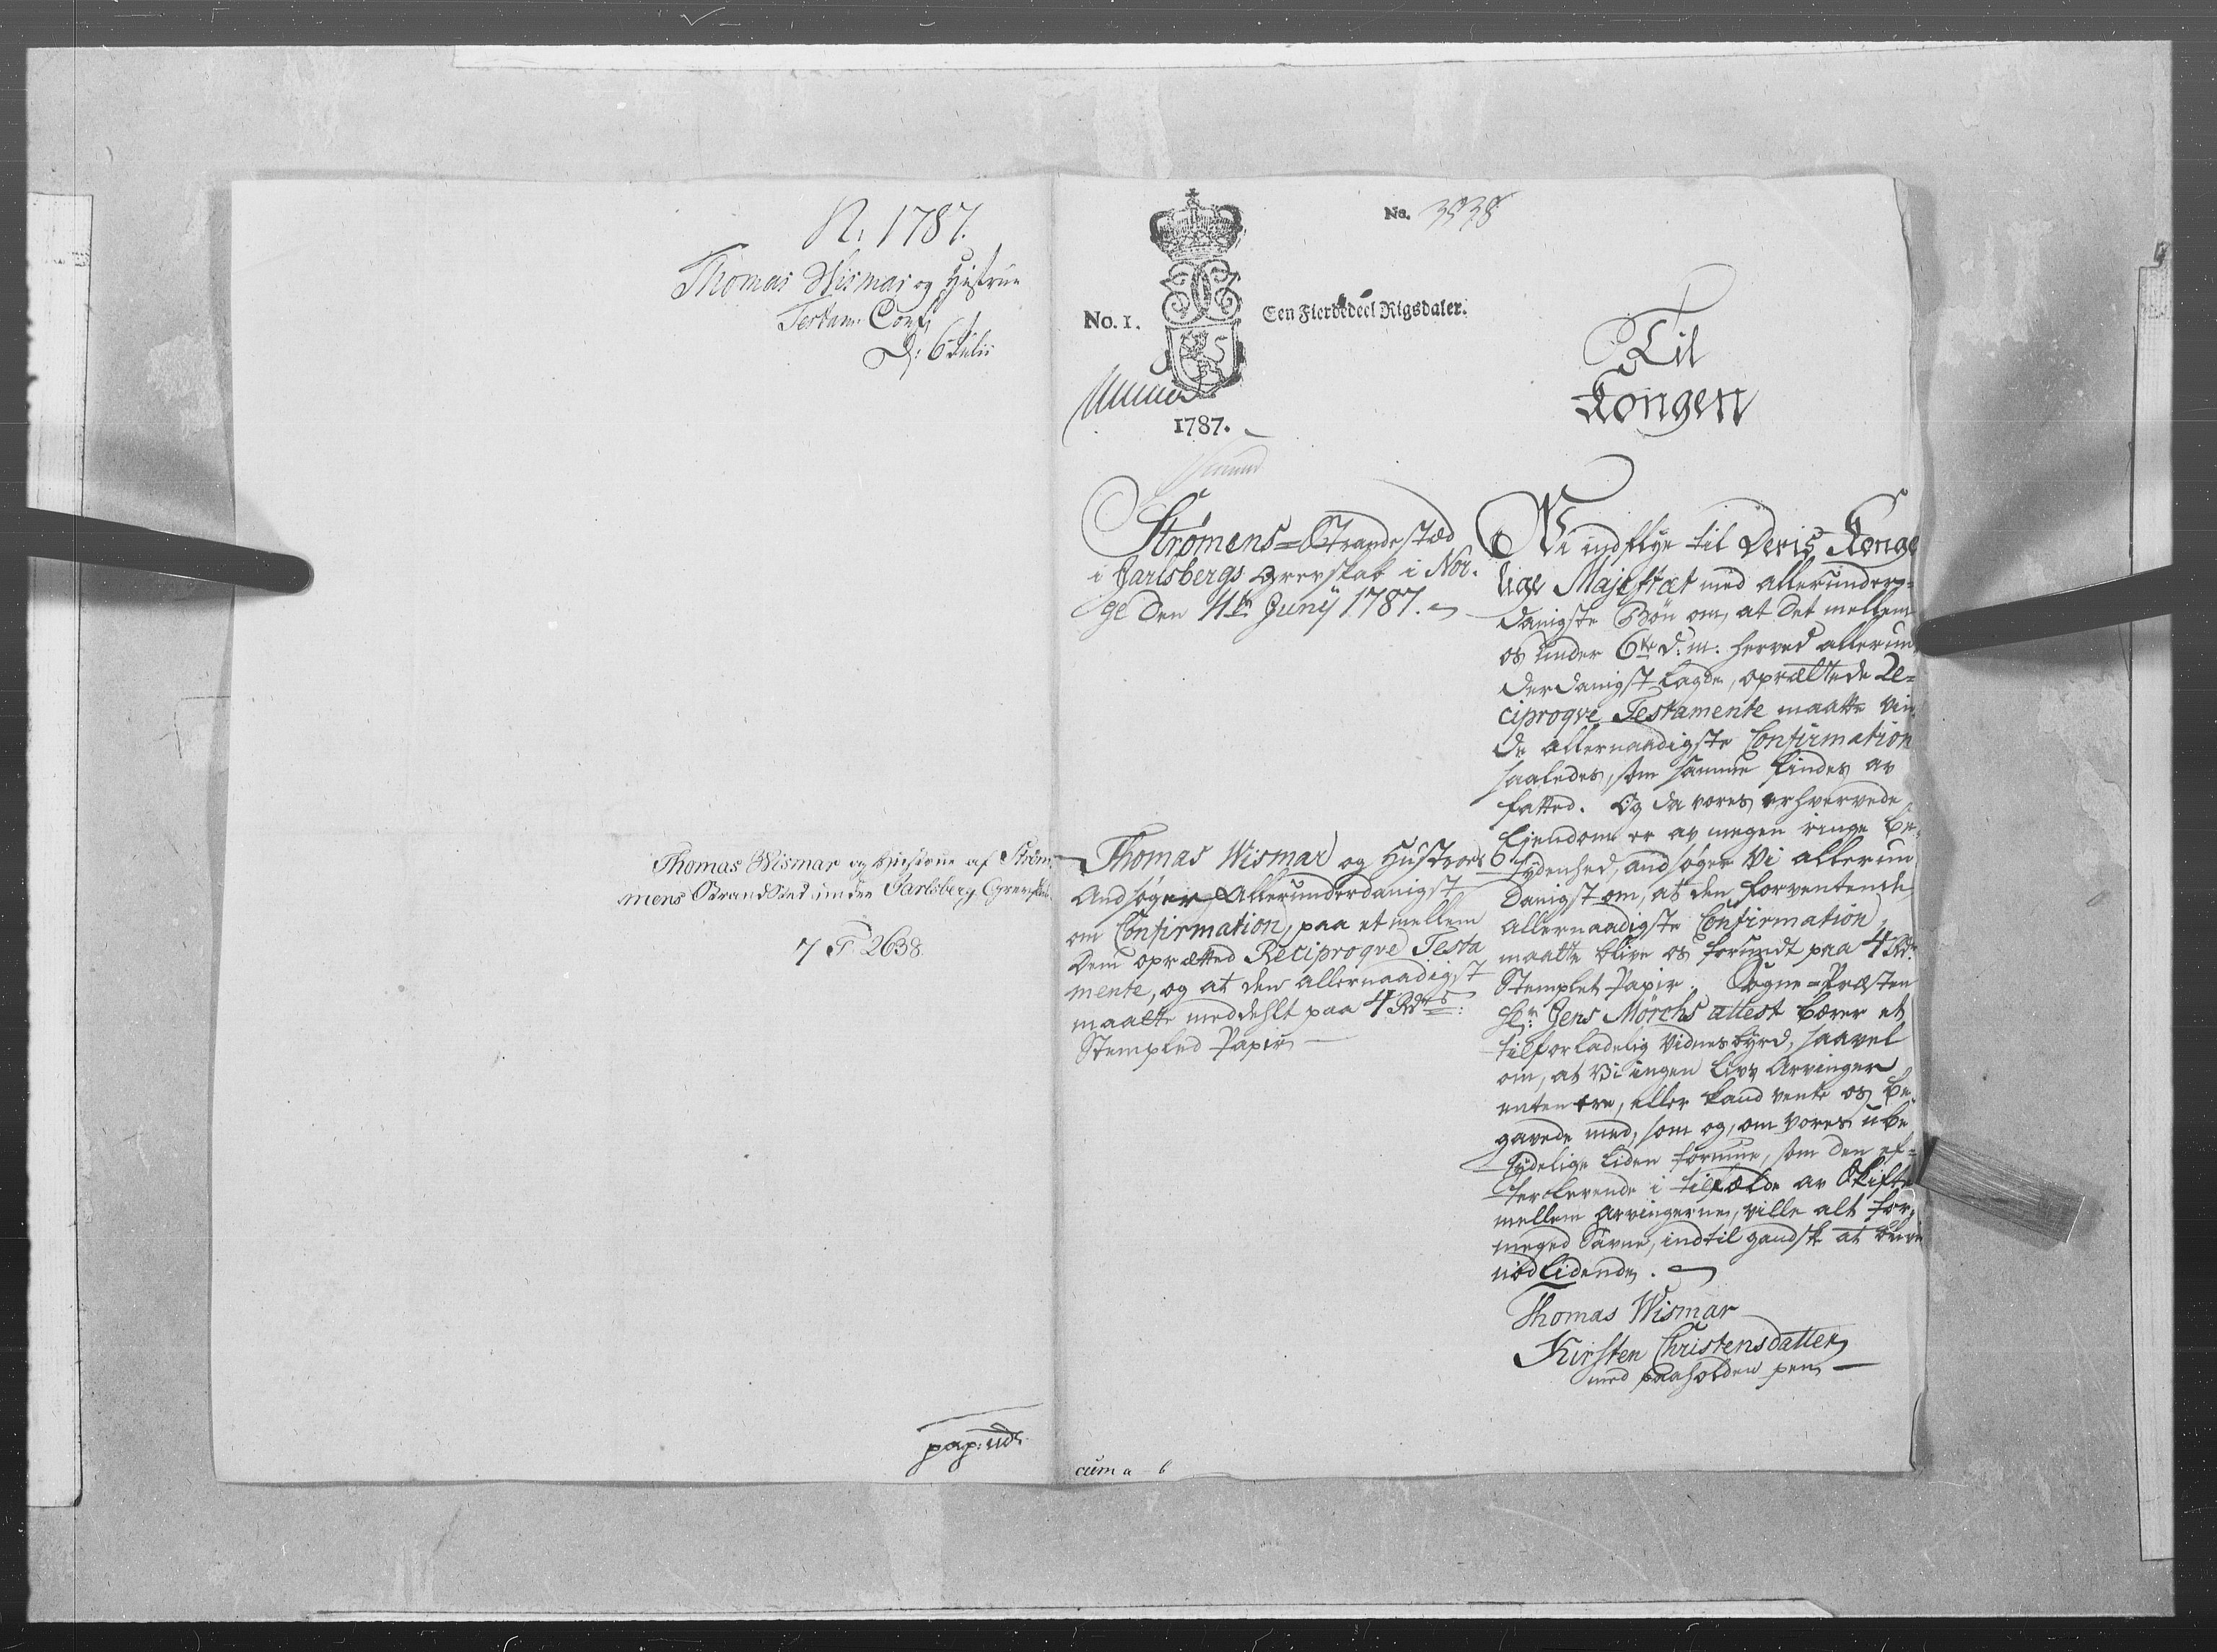 N. 1787.
Thomas Wismar og Hustrue
Testam: Conf:
D: 6 Julii
Thomas Wismar og Hustrue af Ström-
mens StrandSted under Jarlsberg Grevskab.
7 F 2638.
pap: ud.
No. 3938
No. 1.
Een Fierdedeel Rigsdaler.
1787.
Til
Kongen
Strømens=Strandestæd
i Jarlsbergs Grevskab i Nor-
ge den 11te Junij 1787.
Thomas Wismar og Hustroe
Andsøger Allerunderdanigst
om Confirmation, paa et mellem
dem oprætted Reciproqve Testa
mente, og at den allernaadigst
maatte meddehlt paa 4 Rdrs:
Stempled Papir
cum a b
Vi indflye til Deris Konge
lige Majestæt med allerunder-
danigste Bøn om, at det mellem
os under 6te d: m: herved allerun
derdanigst lagde, oprættede Re-
ciproqve Testamente maatte vin
de allernaadigste Confirmation
saaledes, som samme findes av
fatted. Og da vores erhvervede
Ejendom er av megen ringe be-
tydenhed, andsøger Vi allerun
danigst om, at den forventende
allernaadigste Confirmation
maatte blive os forundt paa 4 Rdr.
Stemplet Papir. Sogne=Præsten
Hr: Jens Mörchs attest bærer et
tilforladelig Vidnesbyrd, saavel
om, at Vi ingen Livs Arvinger
enten ere, eller kand vente os be-
gavede med, som og, om vores ube
tydelige liden formue, som den ef-
terlevende i tilfælde av Skifte
mellem Arvingerne, ville alt for
meged Savne, indtil gandske at blive
nødlidende.
Thomas Wismar
Kirsten Christensdatter
med paaholden pen